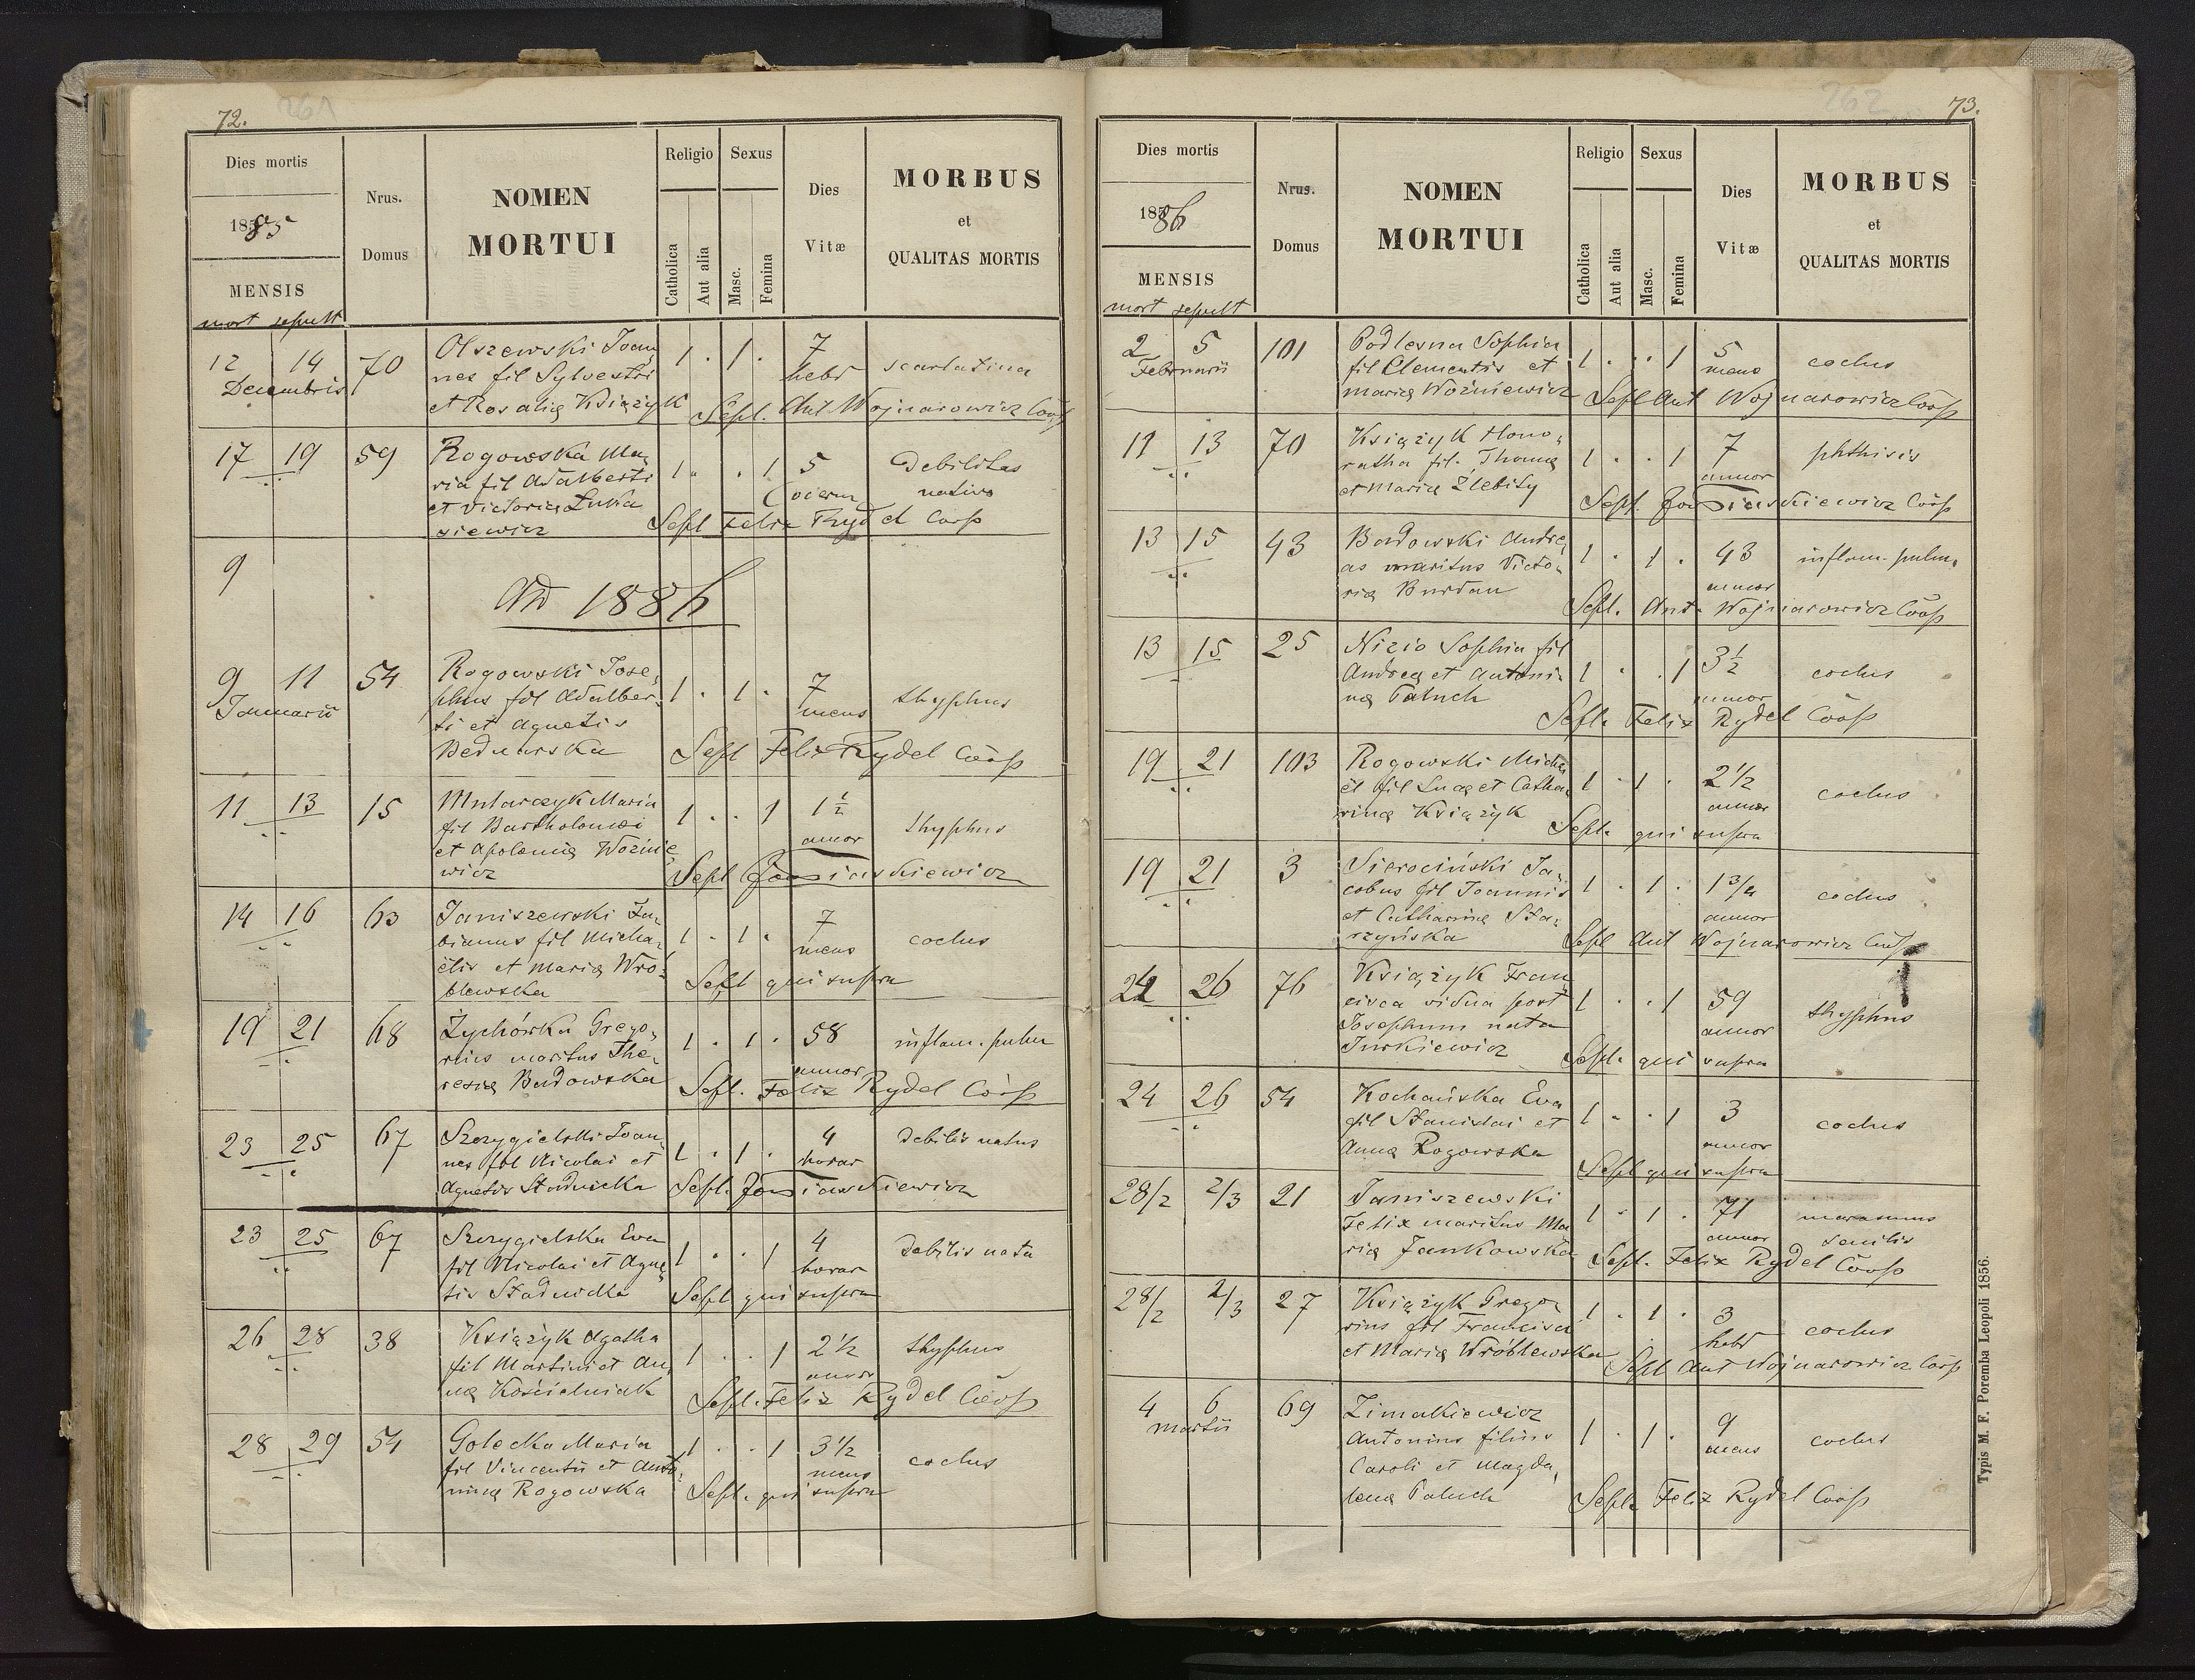 72.
261
Dies mortis
1885
MENSIS
mort sepult
Nrus.
Domus
NOMEN
MORTUI
Religio
Catholica
Aut alia
Sexus
Masc.
Femina
Dies
Vitæ
MORBUS
et
QUALITAS MORTIS
12 14 70 Olszewski Joan, 1 . 1 . 7
Decembris nes fil Sylvestri hebd scarlatina
et Rosaliæ Książyk Sepl. Ant Wojnarowicz Coop
17 19 59 Rogowska Ma, 1 . . 1 5 Debilitas
ria fil Adalberti dierum nativa
et Victoriæ Łuka
siewicz Sepl Felix Rydel Coop
9
AD 1886
9 11 54 Rogowski Jose, 1 . 1 . 7 thyphus
Januarii phus fil Adalber, mens
ti et Agnetis
Bednarska Sepl Felix Rydel Coop
11 13 15 Mularczyk Maria 1 . . 1 1½ thyphus
fil Bartholomæi annor
et Apoloniæ Woźnie,
wicz Sepl Jos iaskiewicz
14 16 63 Janiszewski Fa, 1 . 1 . 7 coctus
bianus fil Micha, mens
ëlis et Mariæ Wró,
blewska Sepl qui supra
19 21 68 Żychówka Grego, 1 . 1 . 58 inflam. pulm
rius maritus The, annor
resiæ Badowska Sepl. Felix Rydel Coop
23 25 67 Szczygielski Joan, 1 . 1 . 4 Debilis natus
nes fil Nicolai et horar
Agnetis Stadnicka Sepl. Jos iaskiewicz
23 25 67 Szczygielska Eva 1 . . 1 4 Debilis nata
fil Nicolai et Agne horar
tis Stadnicka Sepl qui supra
26 28 38 Książyk Agatha 1 . . 1 2½ thyphus
fil Martini et An, annor
næ Kościelniak Sepl. Felix Rydel Coop
28 29 54 Golecka Maria 1 . . 1 3½ coctus
fil Vincentii et Anto, mens
ninæ Rogowska Sepl. qui supra
262
73.
Dies mortis
1886
MENSIS
mort sepult
Nrus.
Domus
NOMEN
MORTUI
Religio
Catholica
Aut alia
Sexus
Masc.
Femina
Dies
Vitæ
MORBUS
et
QUALITAS MORTIS
2 5 101 Podlesna Sophia 1 . . 1 5 coctus
Februarii fil Clementis et mens
Mariæ Woźniewicz Sepl Ant Wojnarowicz Coop
11 13 70 Książyk Hono, 1 . . 1 7 phthisis
ratha fil. Thomæ annor
et Mariæ Złebity Sepl. Jos iaskiewicz Coop
13 15 43 Badowski Andre, 1 . 1 . 43 inflam. pulm.
as maritus Victo, annor
riæ Burdan Sepl. Ant. Wojnarowicz Coop
13 15 25 Nizio Sophia fil 1 . . 1 3½ coctus
Andreæ et Antoni, annor
næ Paluch Sepl. Felix Rydel Coop
19 21 103 Rogowski Micha 1 . 1 . 2½ coctus
ël fil Lucæ et Catha, annor
rinæ Książyk Sepl. qui supra
19 21 3 Sierociński Ja, 1 . 1 . 1¾ coctus
cobus fil Joannis annor
et Catharinæ Sta,
rzyńska Sepl Ant Wojnarowicz Coop
24 26 76 Książyk Fran, 1 . . 1 59 thyphus
cisca vidua post annor
Josephum nata
Jurkiewicz Sepl. qui supra
24 26 54 Kochańska Eva 1 . . 1 3 coctus
fil Stanislai et annor
Annæ Rogowska Sepl qui supra
28/2 2/3 21 Janiszewski 1 . 1 . 71 marasmus
Felix maritus Ma annor senilis
riæ Jankowska Sepl. Felix Rydel Coop
28/2 2/3 27 Książyk Grego, 1 . 1 . 3 coctus
rius fil Francisci hebd
et Mariæ Wróblewska Sepl Ant Wojnarowicz Coop
4 6 69 Zimakiewicz 1 . 1 . 9 coctus
Martii Antonius filius mens
Caroli et Magda,
lenæ Paluch Sepl. Felix Rydel Coop
Typis M. F. Poremba Leopoli 1856.